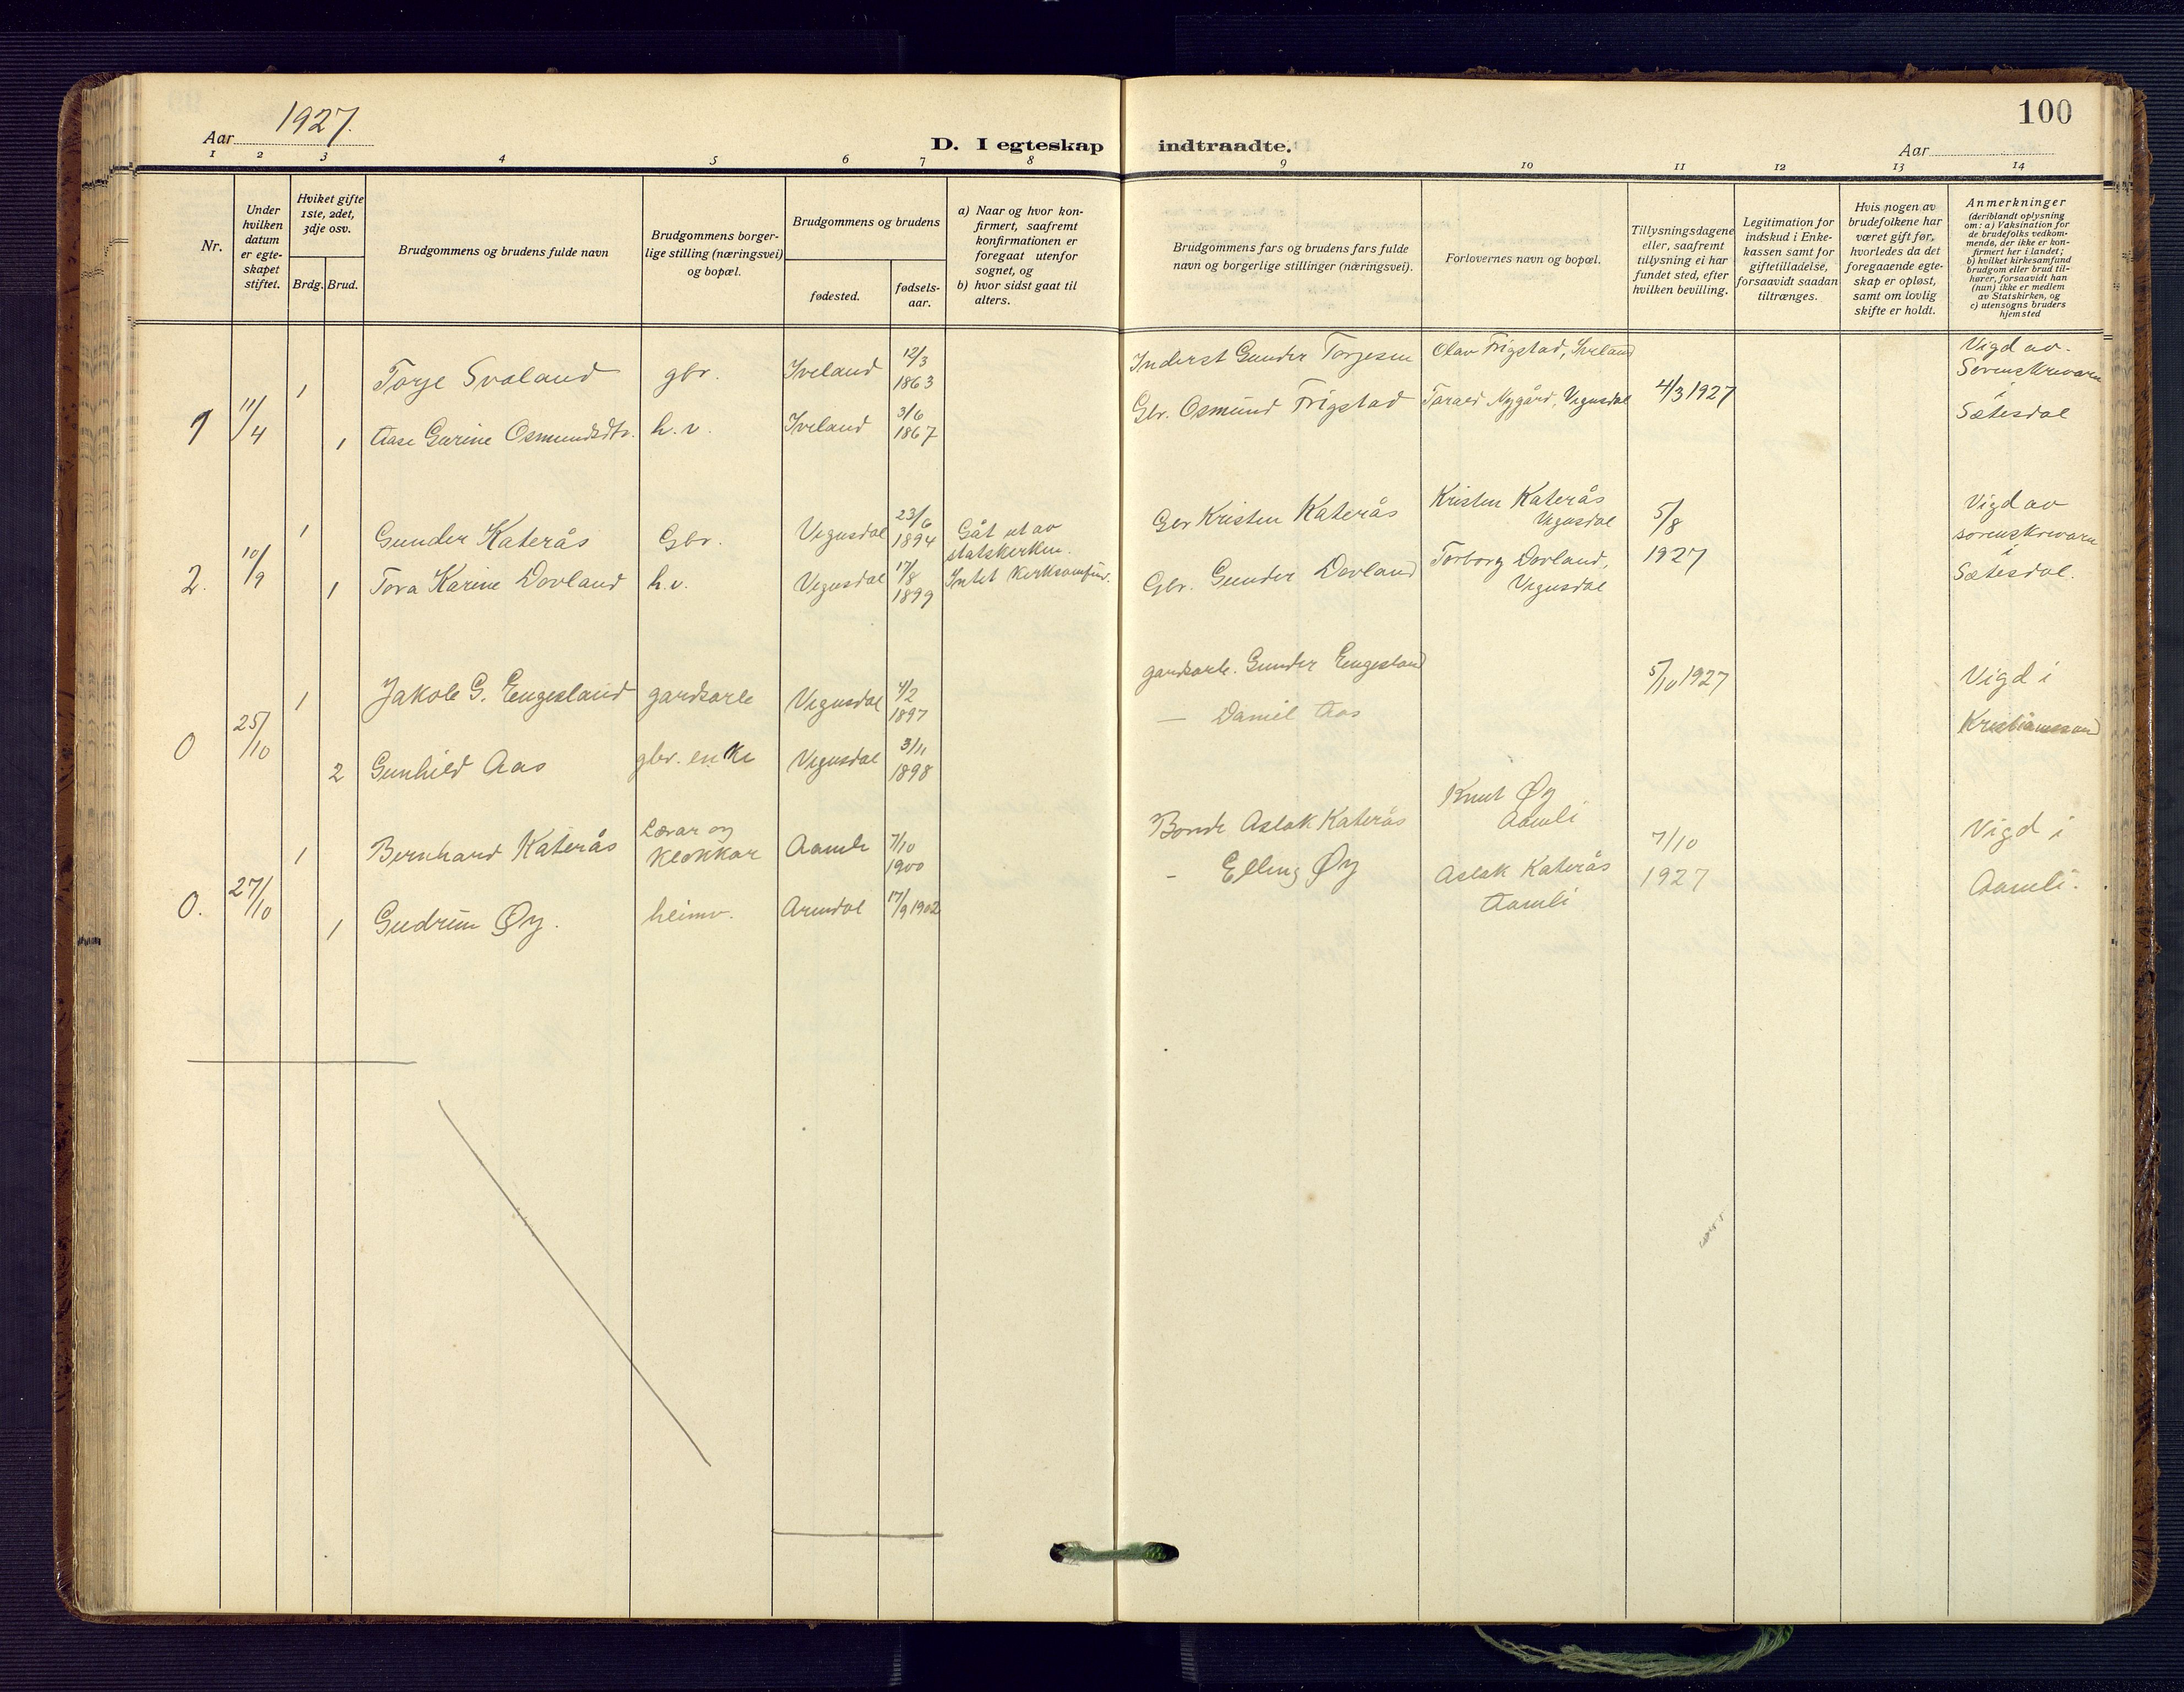 1927.
Aar
D. I egteskap indtraadte.
100
Aar
1 2 3 4 5 6 7 8 9 10 11 12 13 14
Nr.
Under hvilken datum er egteskapet stiftet.
Hviket gifte 1ste, 2det, 3dje osv.
Brdg. Brud.
Brudgommens og brudens fulde navn
Brudgommens borgerlige stilling (næringsvei) og bopæl.
Brudgommens og brudens
fødested.
fødselsaar.
a) Naar og hvor konfirmert, saafremt konfirmationen er foregaat utenfor sognet, og
b) hvor sidst gaat til alters.
Brudgommens fars og brudens fars fulde navn og borgerlige stillinger (næringsvei).
Forlovernes navn og bopæl.
Tillysningsdagene eller, saafremt tillysning ei har fundet sted, efter hvilken bevilling.
Legitimation for indskud i Enkekassen samt for giftetilladelse, forsaavidt saadan tiltrænges.
Hvis nogen av brudefolkene har været gift før, hvorledes da det foregaaende egteskap er opløst, samt om lovlig skifte er holdt.
Anmerkninger
(deriblandt oplysning om: a) Vaksination for de brudefolks vedkommende, der ikke er konfirmert her i landet; b) hvilket kirkesamfund brudgom eller brud tilhører, forsaavidt han (hun) ikke er medlem av Statskirken, og c) utensogns bruders hjemsted
1 11/4
1 Torje Svaland gbr. Iveland 12/3 1863 Inderst Gunder Torjesen Olav Frigstad, Iveland
1 Aase Gurine Osmundsdtr. h.v. Iveland 3/6 1867 Gbr. Osmund Frigstad Tarald Nygård, Vegusdal 4/3 1927
Vigd av Sorenskrivaren i Sætesdal
2. 10/9
1 Gunder Katerås Gbr. Vegusdal 23/6 1894 Gåt ut av statskirken. Gbr Kristen Katerås Kristen Katerås Vegusdal 5/8
1 Tora Karine Dovland h.v. Vegusdal 17/8 1899 Intet kirksamfun. Gbr. Gunder Dovland Torborg Dovland, Vegusdal 1927
Vigd av sorenskrivaren i Sætesdal.
0 25/10
1 Jakob G. Engesland gardsarb Vegusdal 4/2 1897 gardsarb. Gunder Engesland 5/10 1927
2 Gunhild Aas gbr. enke Vegusdal 3/11 1898 — Daniel Aas
Vigd i Kristianssand
0. 27/10
1 Bernhard Katerås Lærar og klokkar Aamli 7/10 1900 Bonde Aslak Katerås Knut Øy Aamli 7/10
1 Gudrun Øy. heimv. Arendal 17/9 1902 - Elling Øy Aslak Katerås Aamli 1927
Vigd i Aamli.